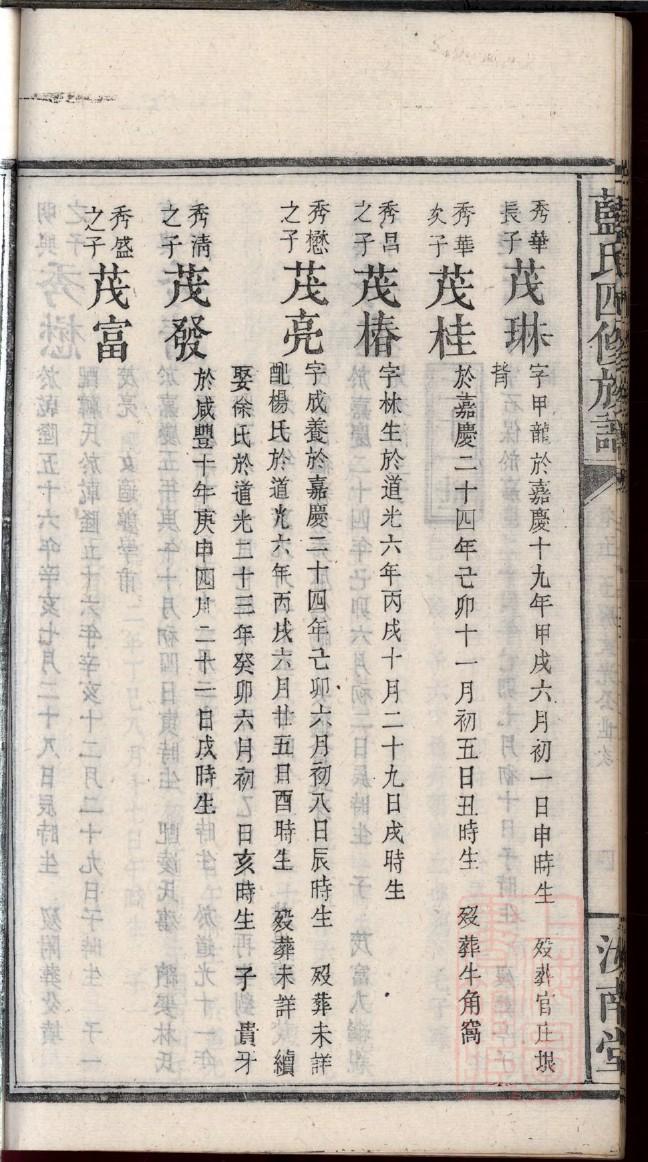 藍氏四修族譜
汝南堂
秀華長子 茂琳 字甲龍於嘉慶十九年甲戌六月初一日申時生 歿葬官庄垻
背
秀華次子 茂桂 於嘉慶二十四年己卯十一月初五日丑時生 歿葬牛角窩
秀昌之子 茂椿 字林生於道光六年丙戌十月二十九日戌時生
秀懋之子 茂亮 字成養於嘉慶二十四年己卯六月初八日辰時生 歿葬未詳
配楊氏於道光六年丙戌六月廿五日酉時生 歿葬未詳 續
娶徐氏於道光二十三年癸卯六月初 日亥時生 子 貴牙
秀清之子 茂發 於咸豐十年庚申四月二十二日戌時生
秀盛之子 茂富